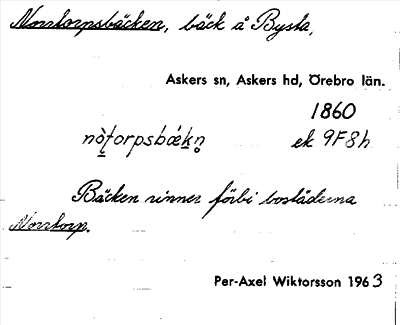 Norrtorpsbäcken, bäck å Bysta,
Askers sn, Askers hd, Örebro län.
1860
nòṭorpsbǽkn̥ ek 9F8h
Bäcken rinner förbi bostäderna
Norrtorp.
Per-Axel Wiktorsson 1963